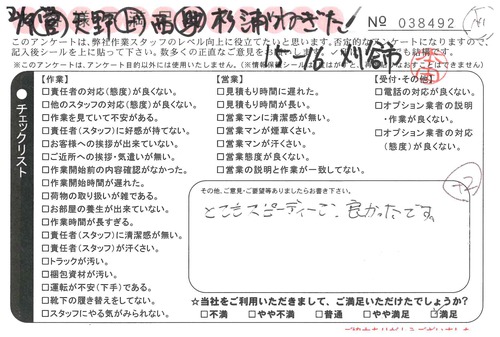 № 038492
このアンケートは、弊社作業スタッフのレベル向上に役立てたいと思います。否定的なアンケートになりますので、
記入後シールを上に貼って下さい。数多くの正直なご意見をお
※このアンケートは、アンケート目的以外には使用いたしません。
5-16 刈谷市
チェックリスト
【作業】
□責任者の対応(態度)が良くない。
□他のスタッフの対応(態度)が良くない。
□作業を見ていて不安がある。
□責任者(スタッフ)に好感が持てない。
□お客様への挨拶が出来ていない。
□ご近所への挨拶・気遣いが無い。
□作業開始前の内容確認がなかった。
□作業開始時間が遅れた。
□荷物の取り扱いが雑である。
□お部屋の養生が出来ていない。
□作業時間が長すぎる。
□責任者(スタッフ)に清潔感が無い。
□責任者(スタッフ)が汗くさい。
□トラックが汚い。
□梱包資材が汚い。
□運転が不安(下手)である。
□靴下の履き替えをしてない。
□スタッフにやる気がみられない。
【営業】
□見積もり時間に遅れた。
□見積もり時間が長い。
□営業マンに清潔感が無い。
□営業マンが煙草くさい。
□営業マンが汗くさい。
□営業態度が良くない。
□営業の説明と作業が一致してない。
【受付・その他】
□電話の対応が良くない。
□オプション業者の説明
・作業が良くない。
□オプション業者の対応
(態度)が良くない。
その他、ご意見・ご要望等ありましたらお書き下さい。
とてもスピーディーで、良かったです。
☆当社をご利用いただきまして、ご満足いただけたでしょうか?
□不満 □やや不満 □普通 □やや満足 □満足